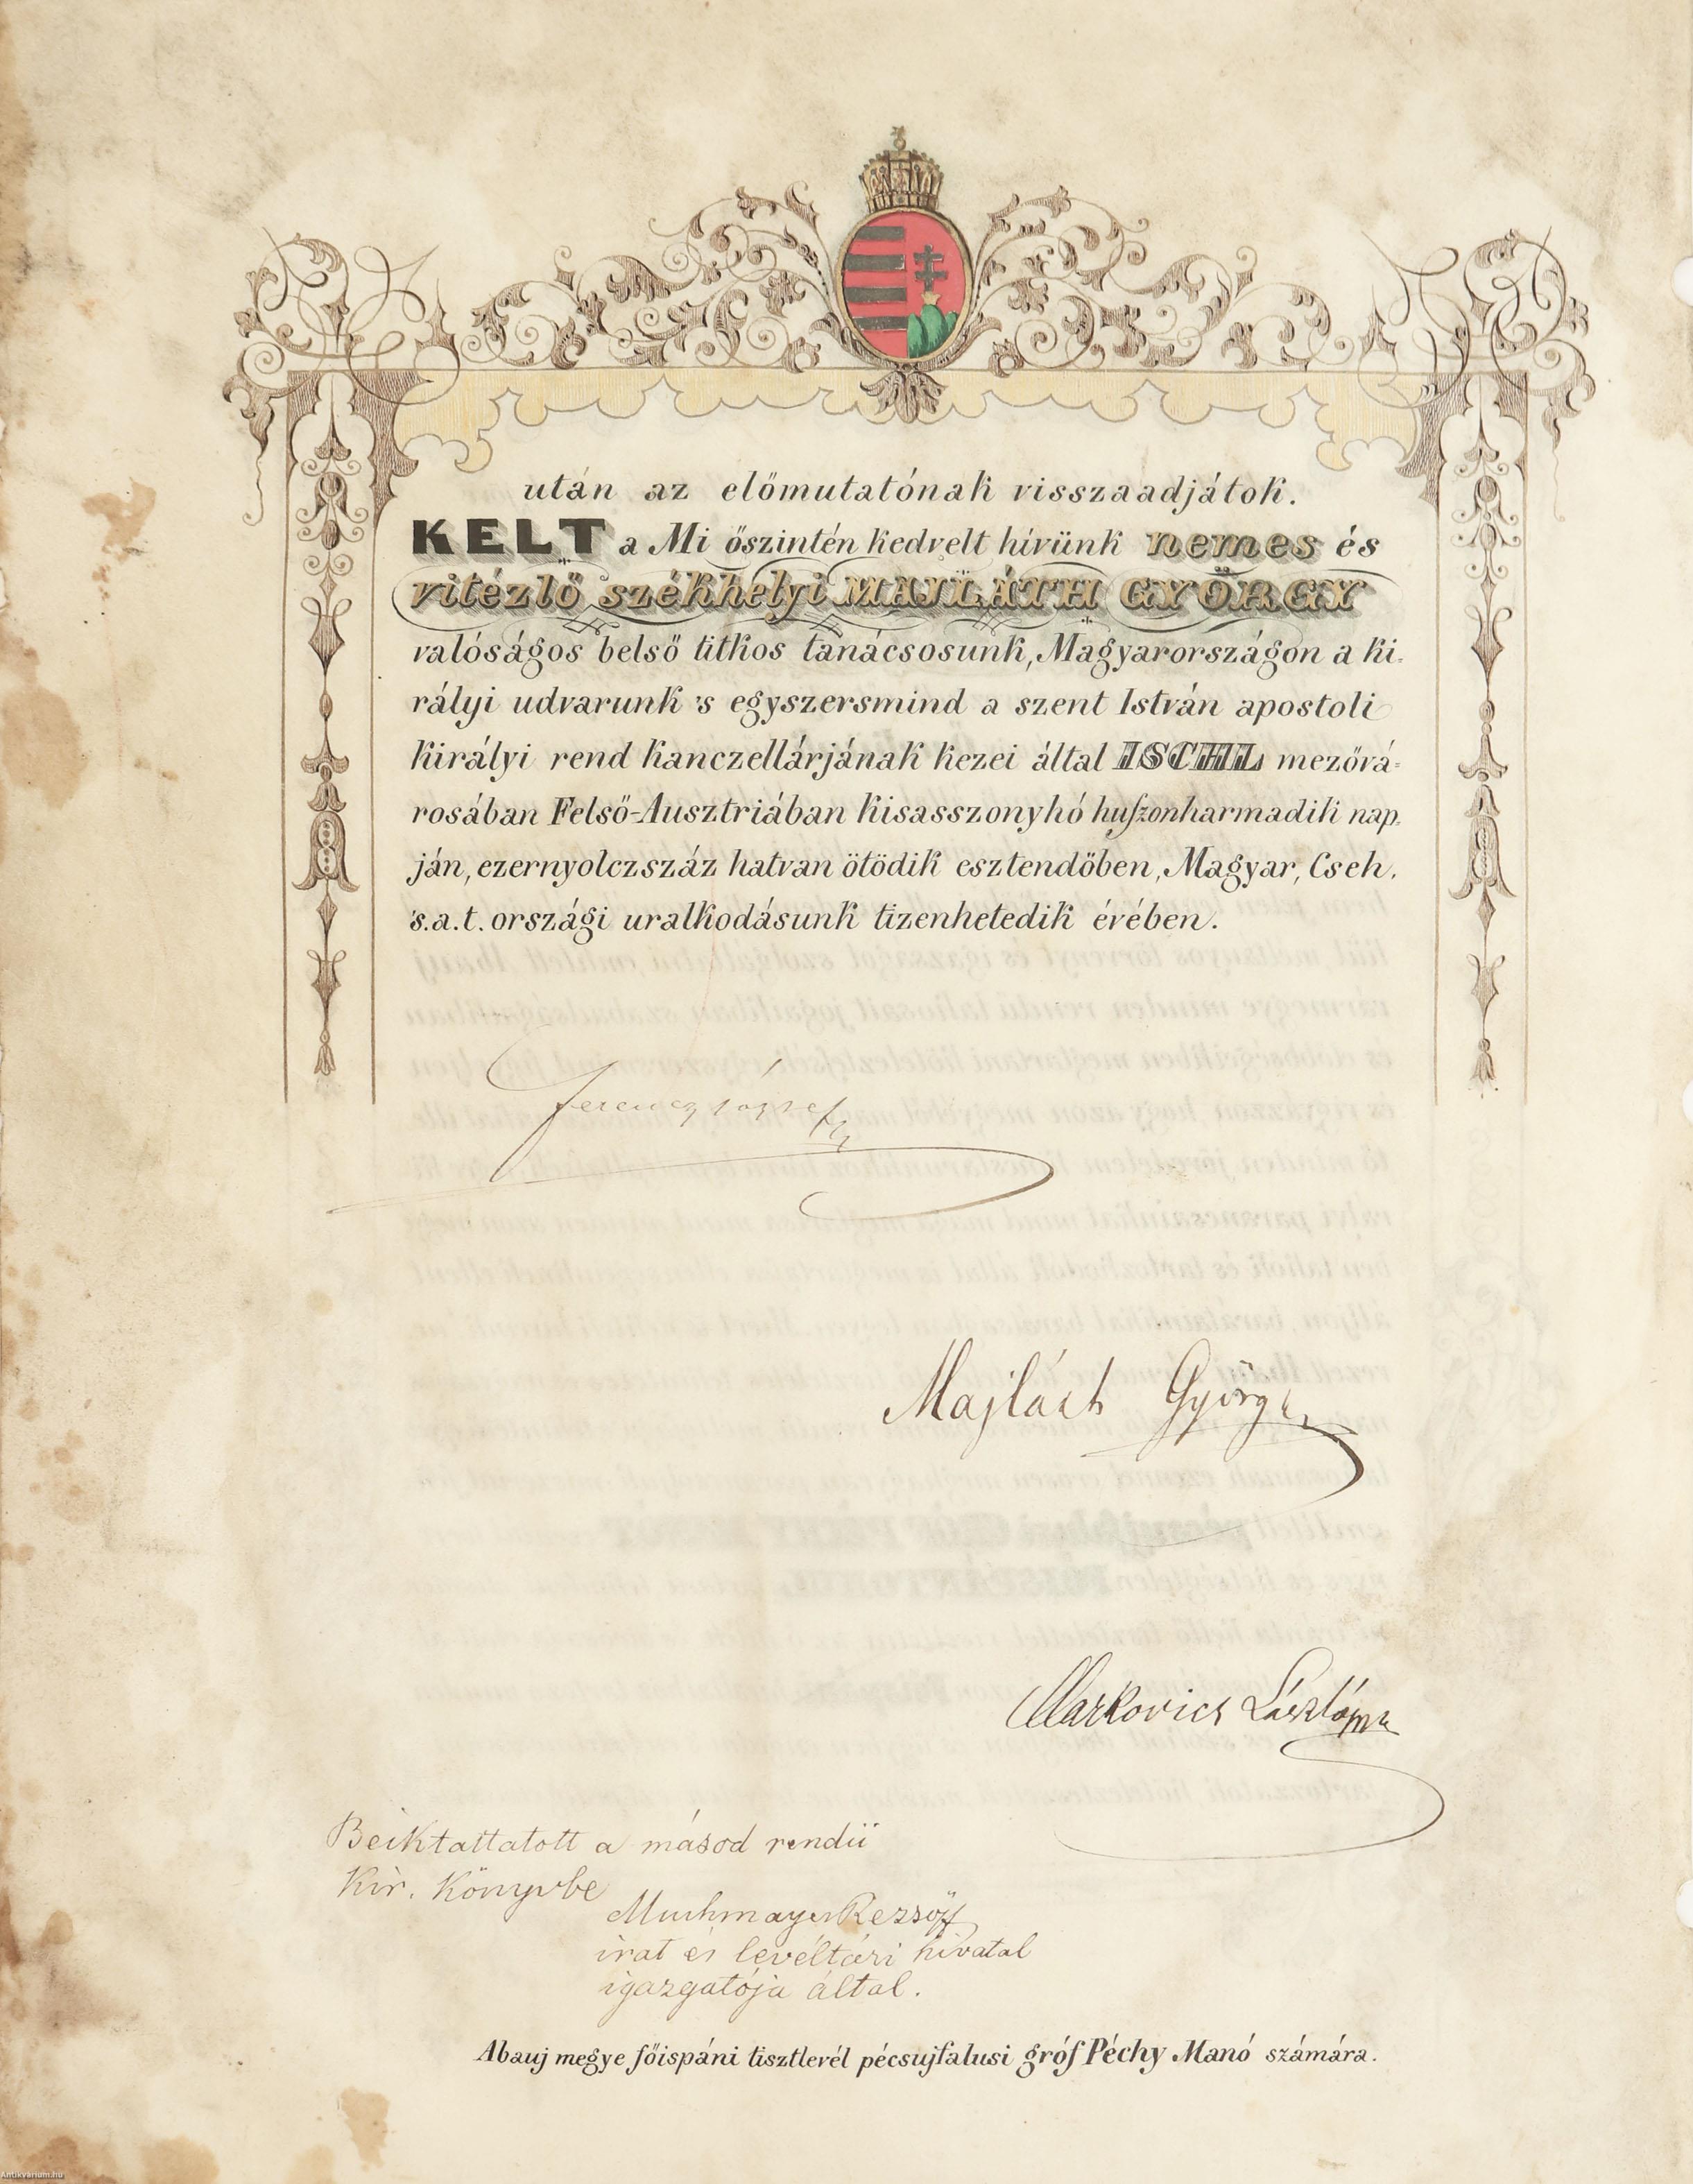 után az előmutatónak visszaadjátok.
KELT a Mi őszintén kedvelt hívünk nemes és
vitézlő székhelyi MAJLÁTH GYÖRGY
valóságos belső titkos tanácsosunk, Magyarországon a ki-
rályi udvarunk 's egyszersmind a szent István apostoli
királyi rend kanczellárjának kezei által ISCHL mezővá-
rosában Felső-Ausztriában kisasszonyhó huszonharmadik nap-
ján, ezernyolczszáz hatvan ötödik esztendőben, Magyar, Cseh,
's.a.t. országi uralkodásunk tizenhetedik évében.
Ferencz József
Majláth György
Markovics László
Beiktattatott a másod rendü
Kir. Könyvbe
Rezső
irat és levéltári hivatal
igazgatója által.
Abauj megye főispáni tisztlevél pécsujfalusi gróf Péchy Manó számára.
Antikvarium.hu